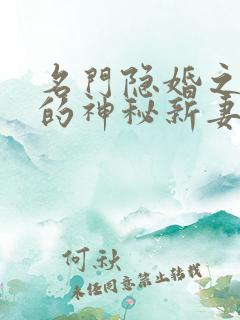 名門隐婚之
的神秘新妻
何秋
未经同意禁止转载